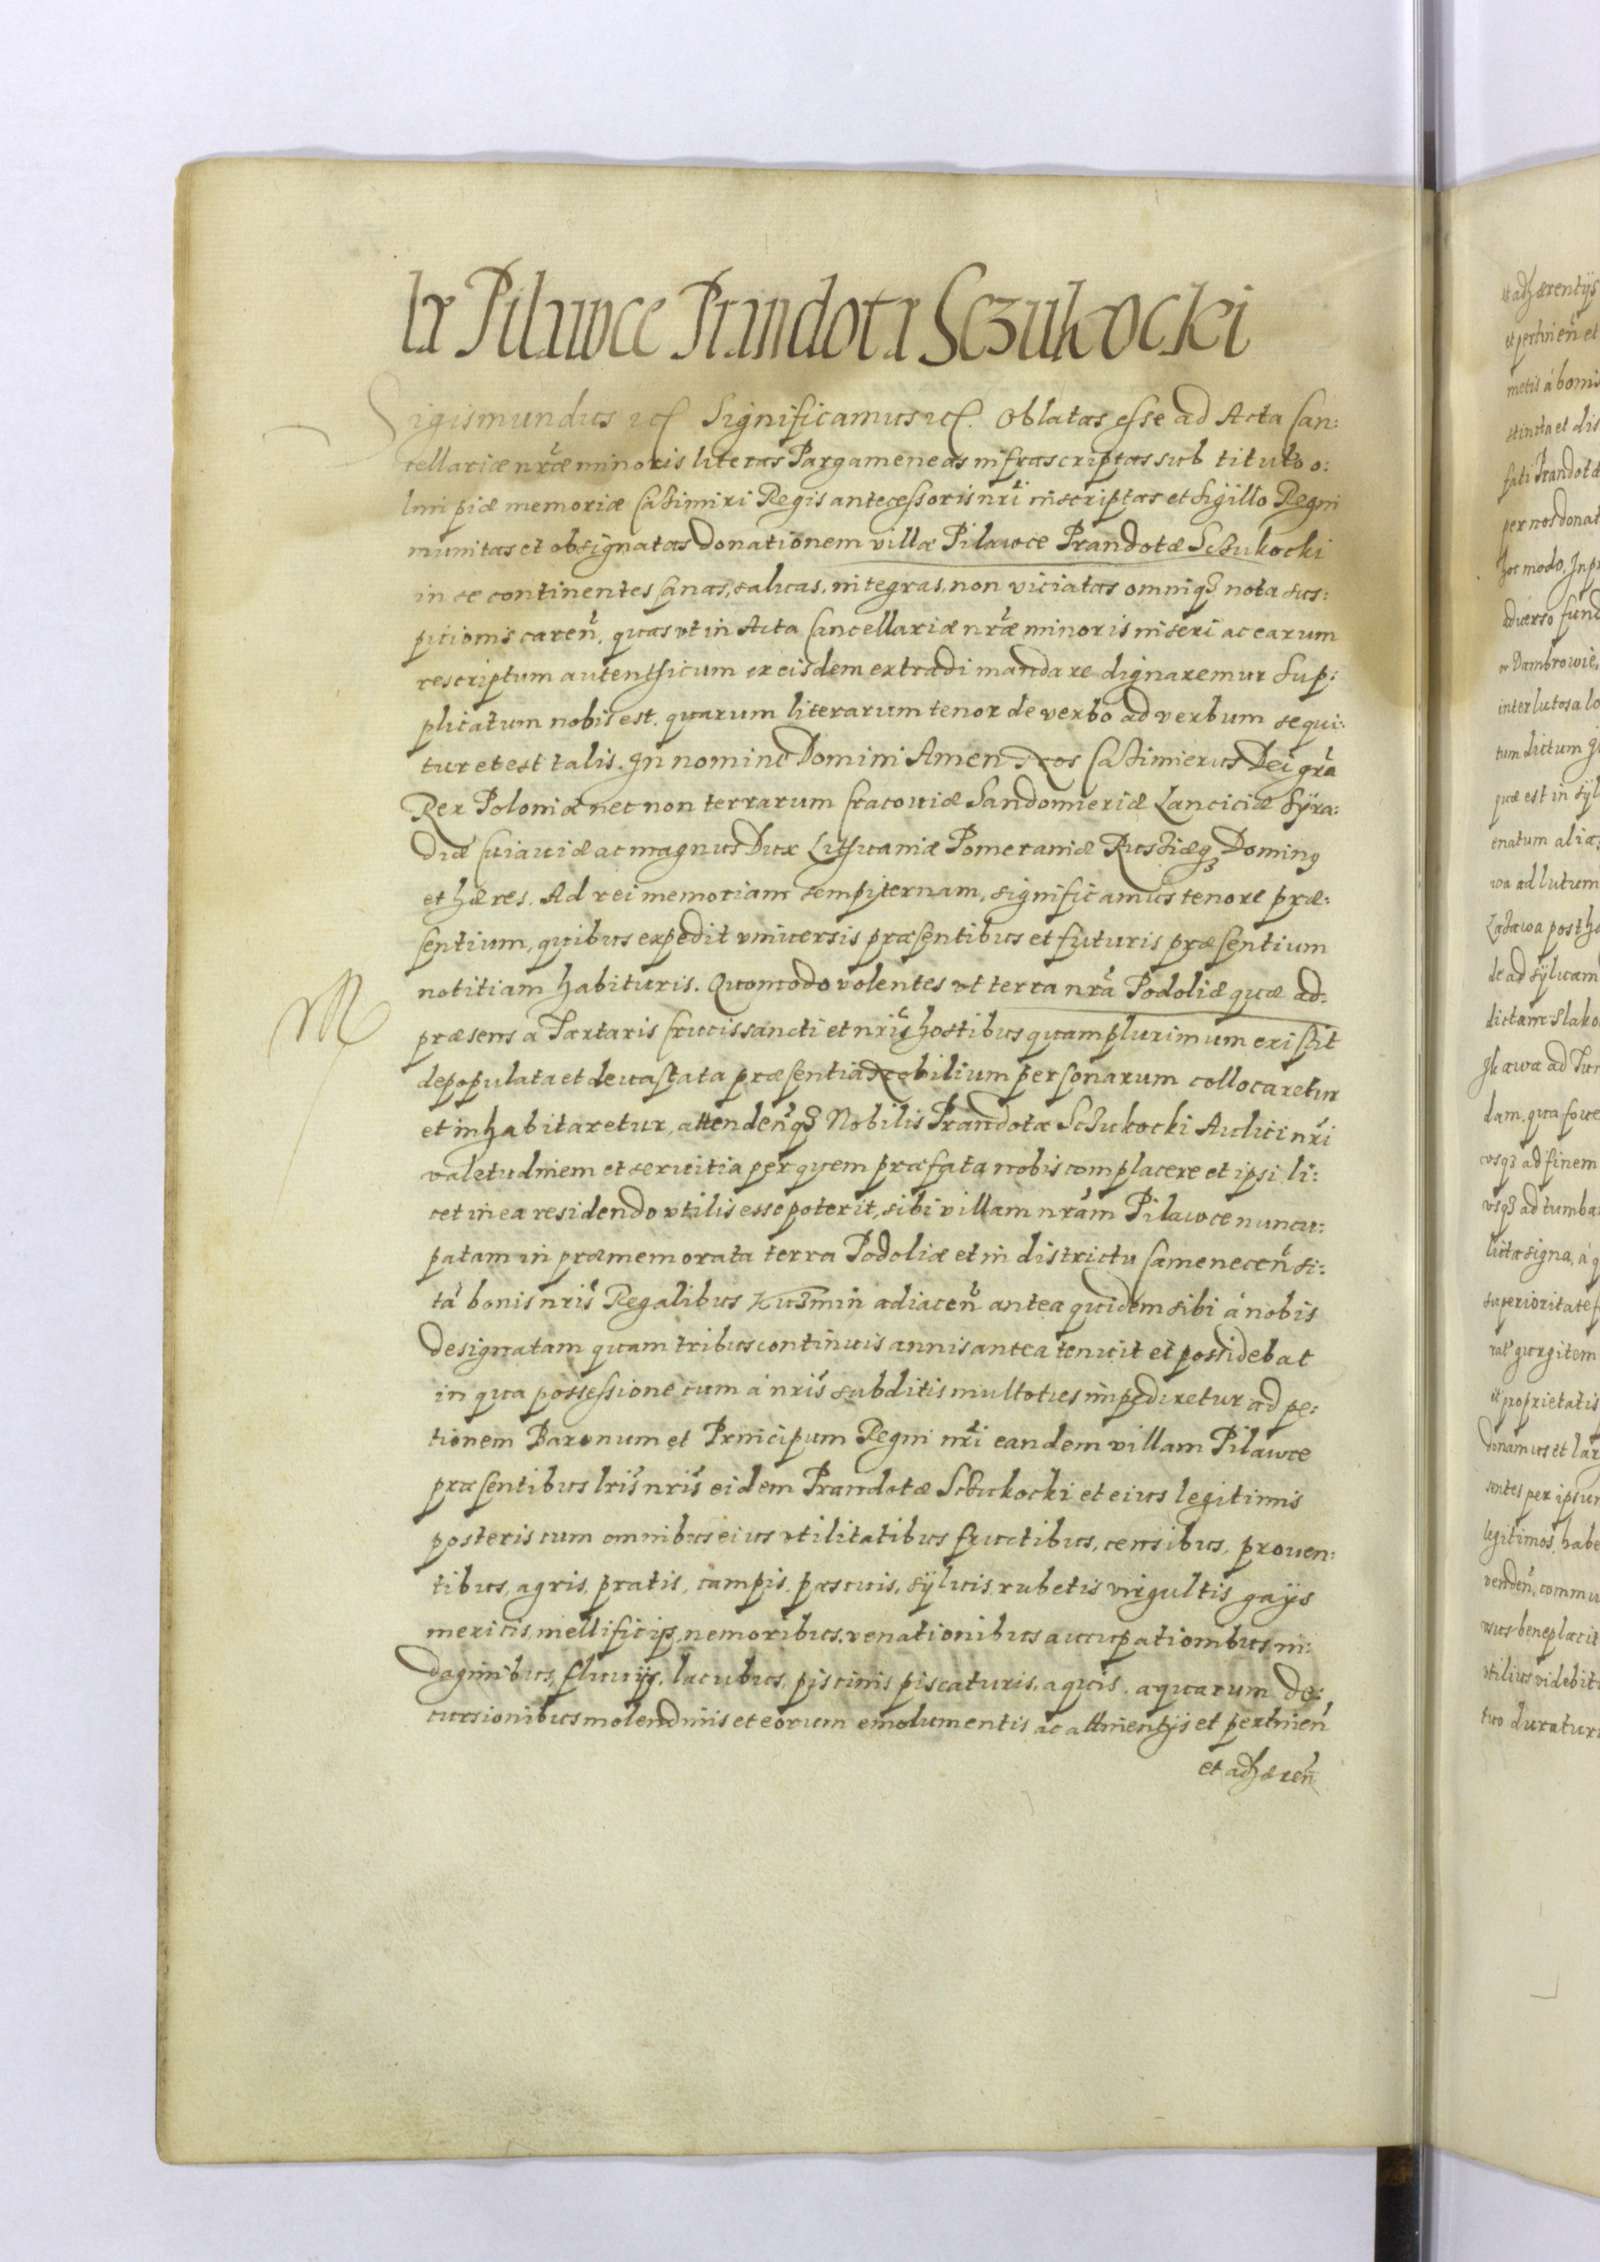 læ Pilawce Prandotæ Sczukocki
Sigismundus etc Significamus etc. Oblatas esse ad Acta Can:
cellariæ nr̃æ minoris literas Pargameneas infrascriptas sub titulo o:
lim piæ memoriæ Casimiri Regis antecessoris nr̃i inscriptas et sigillo Regni
munitas et obsignatas Donationem villæ Pilawce Prandotæ Sczukocki
in se continentes sanas, saluas, integras, non viciatas omniq3 nota sus:
picionis careñ, quas vt in Acta Cancellariæ nr̃æ minoris inseri ac earum
rescriptum autenthicum ex eisdem extradi mandare dignaremur sup:
plicatum nobis est. quarum literarum tenor de verbo ad verbum sequi:
tur et est talis. In nomine Domini Amen Nos Casimierus Dei gr̃a
Rex Poloniæ nec non terrarum Cracouiæ Sandomieriæ Lanciciæ Syra:
diæ Cuiauiæ ac magnus Dux Lithuaniæ Pomeraniæ Russiæq3 Dominus
et hæres. Ad rei memoriam sempiternam, significamus tenore præ:
sentium, quibus expedit vniuersis præsentibus et futuris præsentium
notitiam habituris. Quomodo volentes vt terra nr̃a Podoliæ quæ ad
præsens a Tartaris Crucis sancti et nris̃ hostibus quamplurimum existit
depopulata et deuastata præsentia Nobilium personarum collocaretur
et inhabitaretur, attendeñq3 Nobilis Prandotæ Sczukocki Aulici nr̃i
valetudinem et seruitia per quem præfata nobis complacere et ipsi li:
cet in ea residendo vtilis esse poterit, sibi villam nr̃am Pilawce nuncu:
patam in præmemorata terra Podoliæ et in districtu Cameneceñ si:
tã bonis nris̃ Regalibus Kuzmin adiaceñ antea quidem sibi à nobis
designatam quam tribus continuis annis antea tenuit et possidebat
in qua possessione cum à nris̃ subditis multoties impediretur ad pe:
tionem Baronum et Principum Regni nr̃i eandem villam Pilawce
præsentibus lris̃ nris̃ eidem Prandotæ Sczukocki et eius legitimis
posteris cum omnibus eius vtilitatibus fructibus, censibus, prouen:
tibus, agris, pratis, campis, pascuis, syluis, rubetis virgultis gays
mericis, mellificijs, nemoribus, venationibus aucupationibus in:
daginibus, fluuijs, lacubus, piscinis piscaturis, aquis, aquarum de:
cursionibus molendinis et eorum emolumentis ac attinentijs et pertineñ
et adhæreñ
et adhærentijs
et pertineñ et
metis à bonis
stincta et dis
fati Prandotæ
per nos donat
hoc modo. In pr
aduerso fund
Dambrowie,
inter lutosa lo
tum dictum
quæ est in syl
enatum aliæ
wa ad lutum
postha
de ad syluam
dictam Slako
ad Tur
dam, qua foue
vsq3 ad finem
vsq3 ad tumbas
licta signa, à q
superioritate
gurgitem
et proprietatis
donamus et lar
sentes per ipsum
legitimos, habe
vendeñ, commu
suus beneplacit
vtilius videbitu
tuo duratur